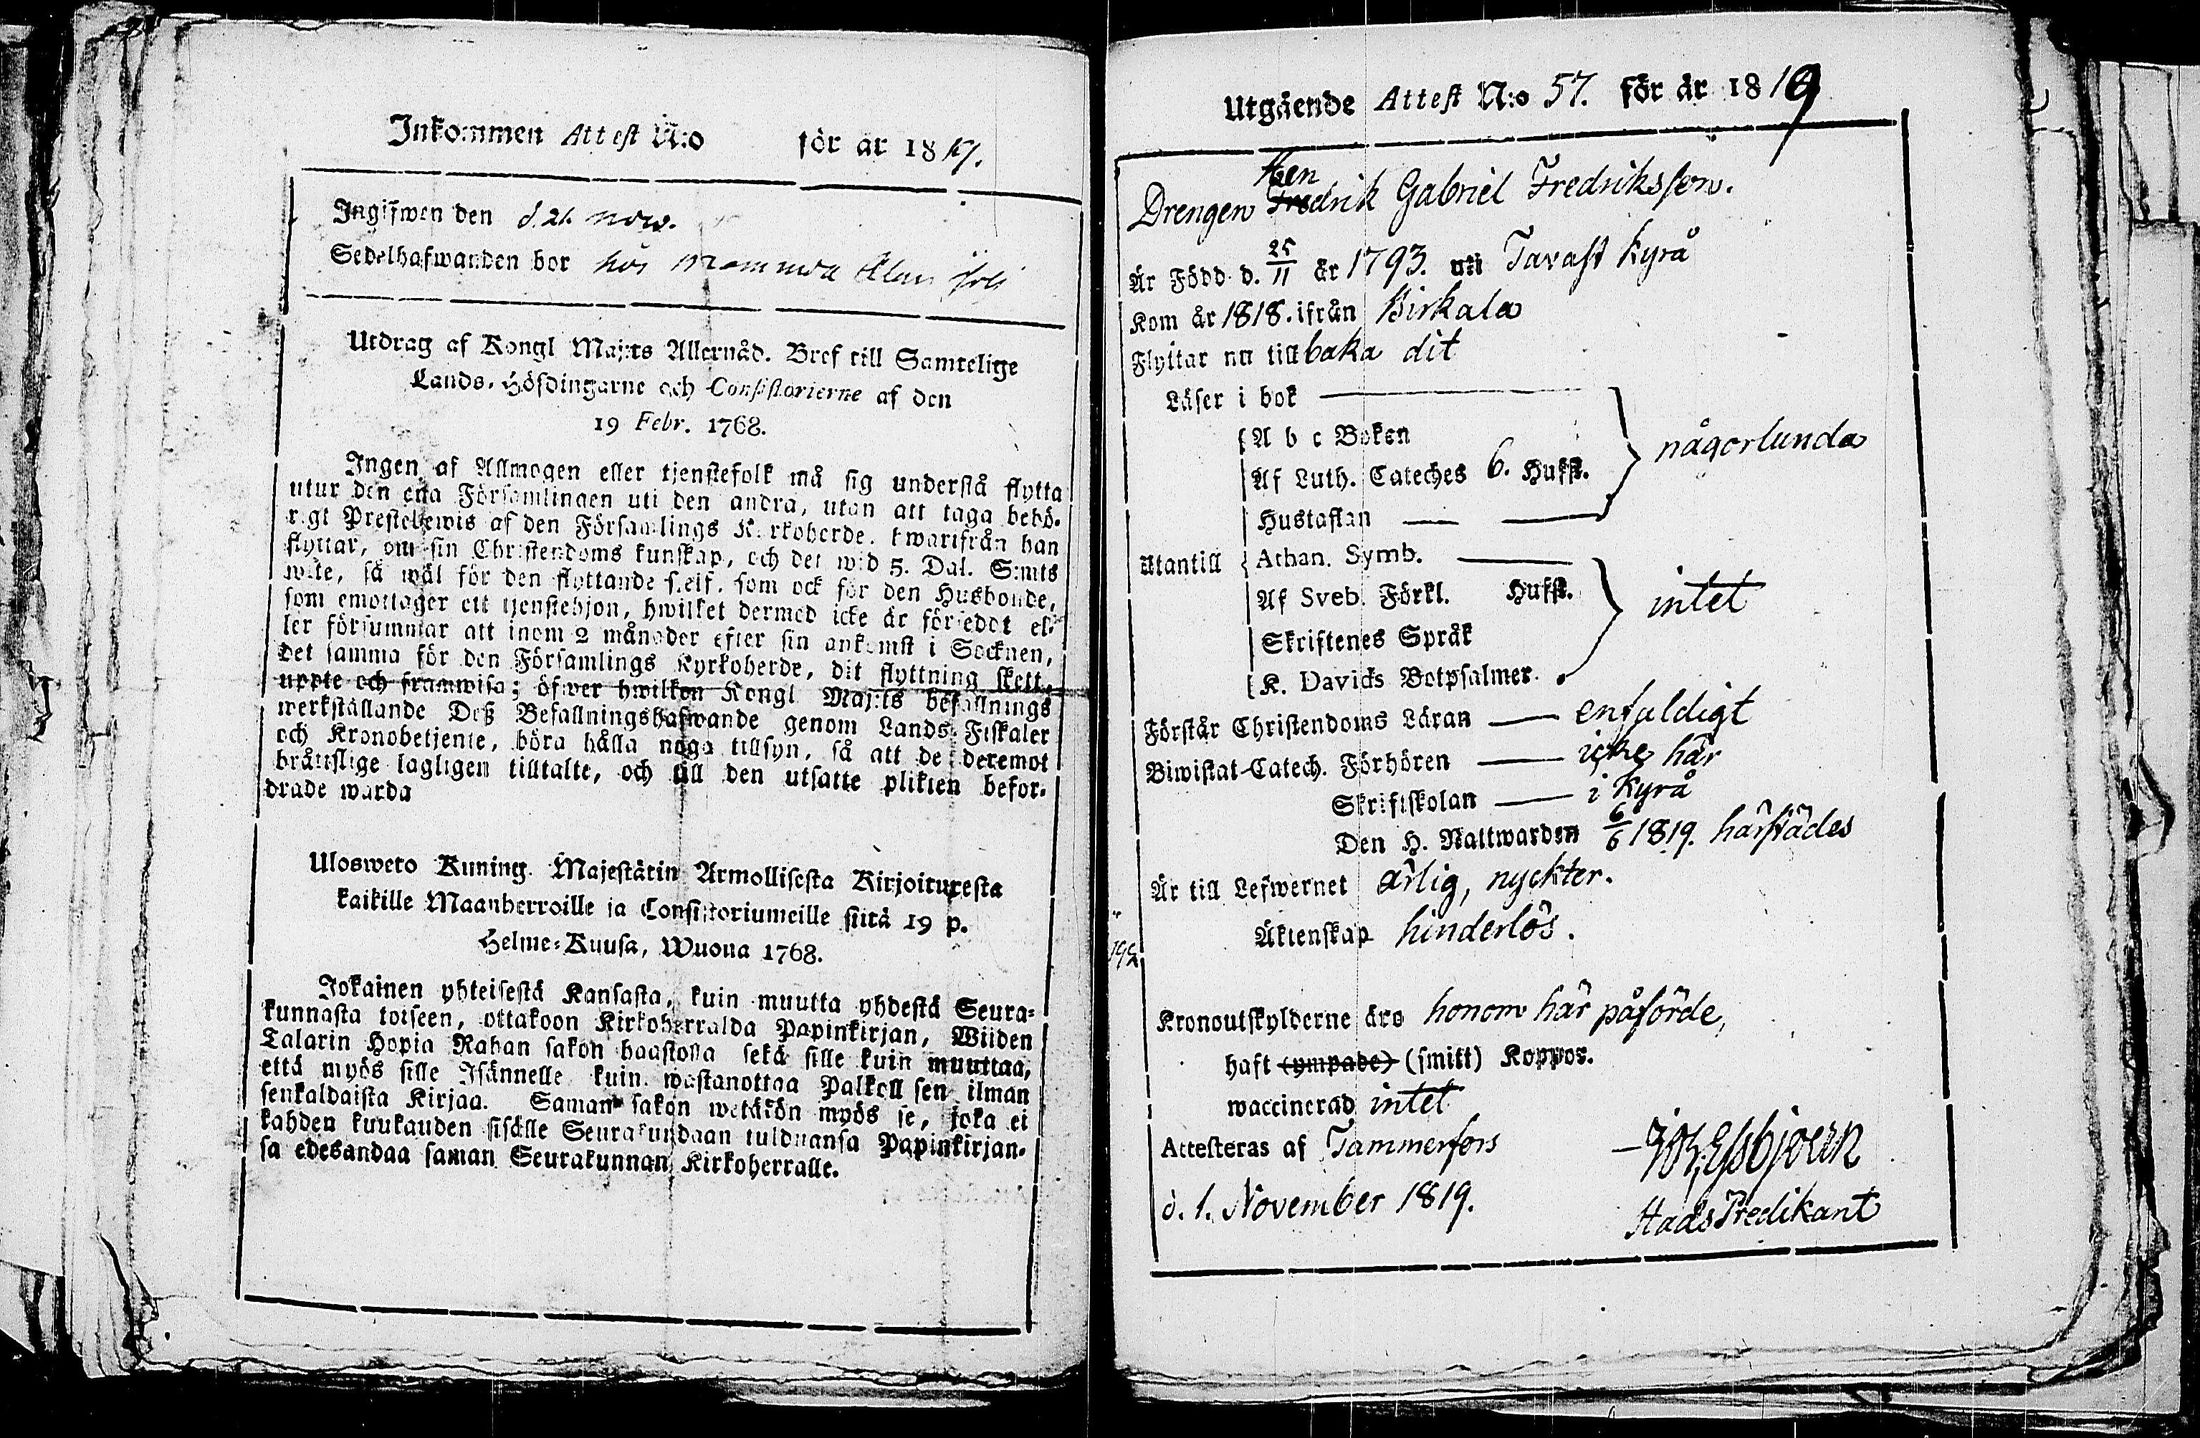 Inkommen Attest N:o för år 18
Ingifwen den d. 21. now.
Sedelhafwanden bor hos
Utdrag af Kongl Maj:ts Allernåd. Bref till Samtelige
Lands-Höfdingarne och Consistorierne af den
19 Febr. 1768.
Ingen af Allmogen eller tjenstefolk må sig understå flytta
utur den ena Församlingen uti den andra, utan att taga behö-
rigt Prestebewis af den Församlings Kyrkoherde, hwarifrån han
flyttar, om sin Christendoms kunskap, och det wid 5. Dal. S:mts
wite, så wäl för den flyttande sjelf, som ock för den Husbonde,
som emottager ett tjenstehjon, hwilket dermed icke är försedot el-
ler försummar att inom 2 månader efter sin ankomst i Socknen,
det samma för den Församlings Kyrkoherde, dit flyttning skett,
uppte och framwisa; öfwer hwilken Kongl Maj:ts befallnings
werkställande Deß Befallningshafwande genom Lands Fiskaler
och Kronobetjente, böra hålla noga tillsyn, så att de deremot
bråttslige lagligen tilltalte, och till den utsatte plikten befor-
drade warda
Ulosweto Kuning. Majestätin Armollisesta Kirjoituxesta
kaikille Maanherroille ja Consistoriumeille siitä 19 p.
Helme-Kuusa, Wuona 1768.
Jokainen yhteisestä Kansasta, kuin muutta yhdestä Seura-
kunnasta toiseen, ottakoon Kirkoherralda Papinkirjan, Wiiden
Talarin Hopia Rahan sakon haastolla sekä sille kuin muuttaa,
että myös sille Isännelle kuin wastanottaa Palkoll sen ilman
senkaldaista Kirjaa. Saman sakon wetäkön myös se, joka ei
kahden kuukauden sisälle Seurakundaan tulduansa Papinkirjan-
sa edesandaa saman Seurakunnan Kirkoherralle.
Utgående Attest N:o 57. för år 1819
Hen
Drengen Fredrik Gabriel Fredriksson.
Är Född d. 25/11 år 1793. uti Tavast Kyrå
Kom år 1818. ifrån Birkala
Flyttar nu tillbaka dit
Läser i bok
A b c Boken
Af Luth. Cateches 6. Hufst. någorlunda
Hustaflan
Utantill Athan. Symb.
Af Sveb. Förkl. Hufst. intet
Skriftenes Språk
K. Davids Botpsalmer.
Förstår Christendoms Läran enfaldigt
Biwistat Catech. Förhören icke här
Skriftskolan i Kyrå
Den H. Nattwarden 6/6 1819. härstädes
Är till Lefwernet ärlig, nyckter.
Äktenskap hinderlös.
Kronoutskylderne äro honom här påförde,
haft (ympade) (smitt) Koppor.
waccinerad intet
Attesteras af Tammerfors Joh. Essbjoern
d. 1. November 1819. Stads Predikant